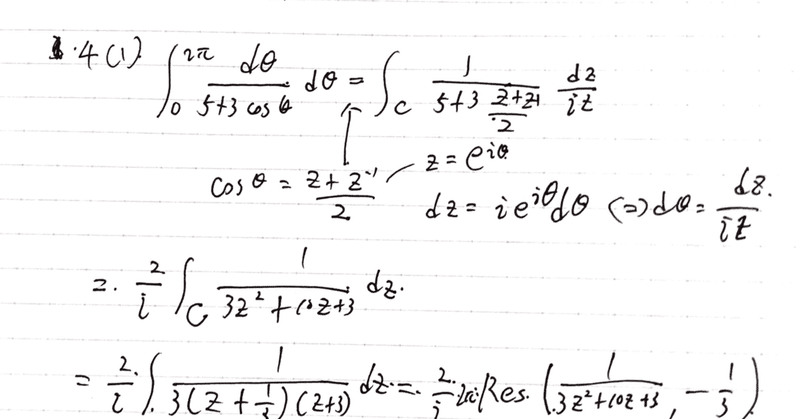 4 (1) ∫_0^{2π} dθ/(5+3 cos θ) dθ = ∫_C 1/(5+3 (z+z^{-1})/2) dz/(iz)
cos θ = (z + z^{-1})/2   z = e^{iθ}
dz = i e^{iθ} dθ ⇔ dθ = dz/(iz).
= 2/i ∫_C 1/(3z² + 10z + 3) dz.
= 2/i ∫ 1/(3(z + 1/3)(z+3)) dz = 2/i 2πi Res (1/(3z² + 10z + 3), -1/3)